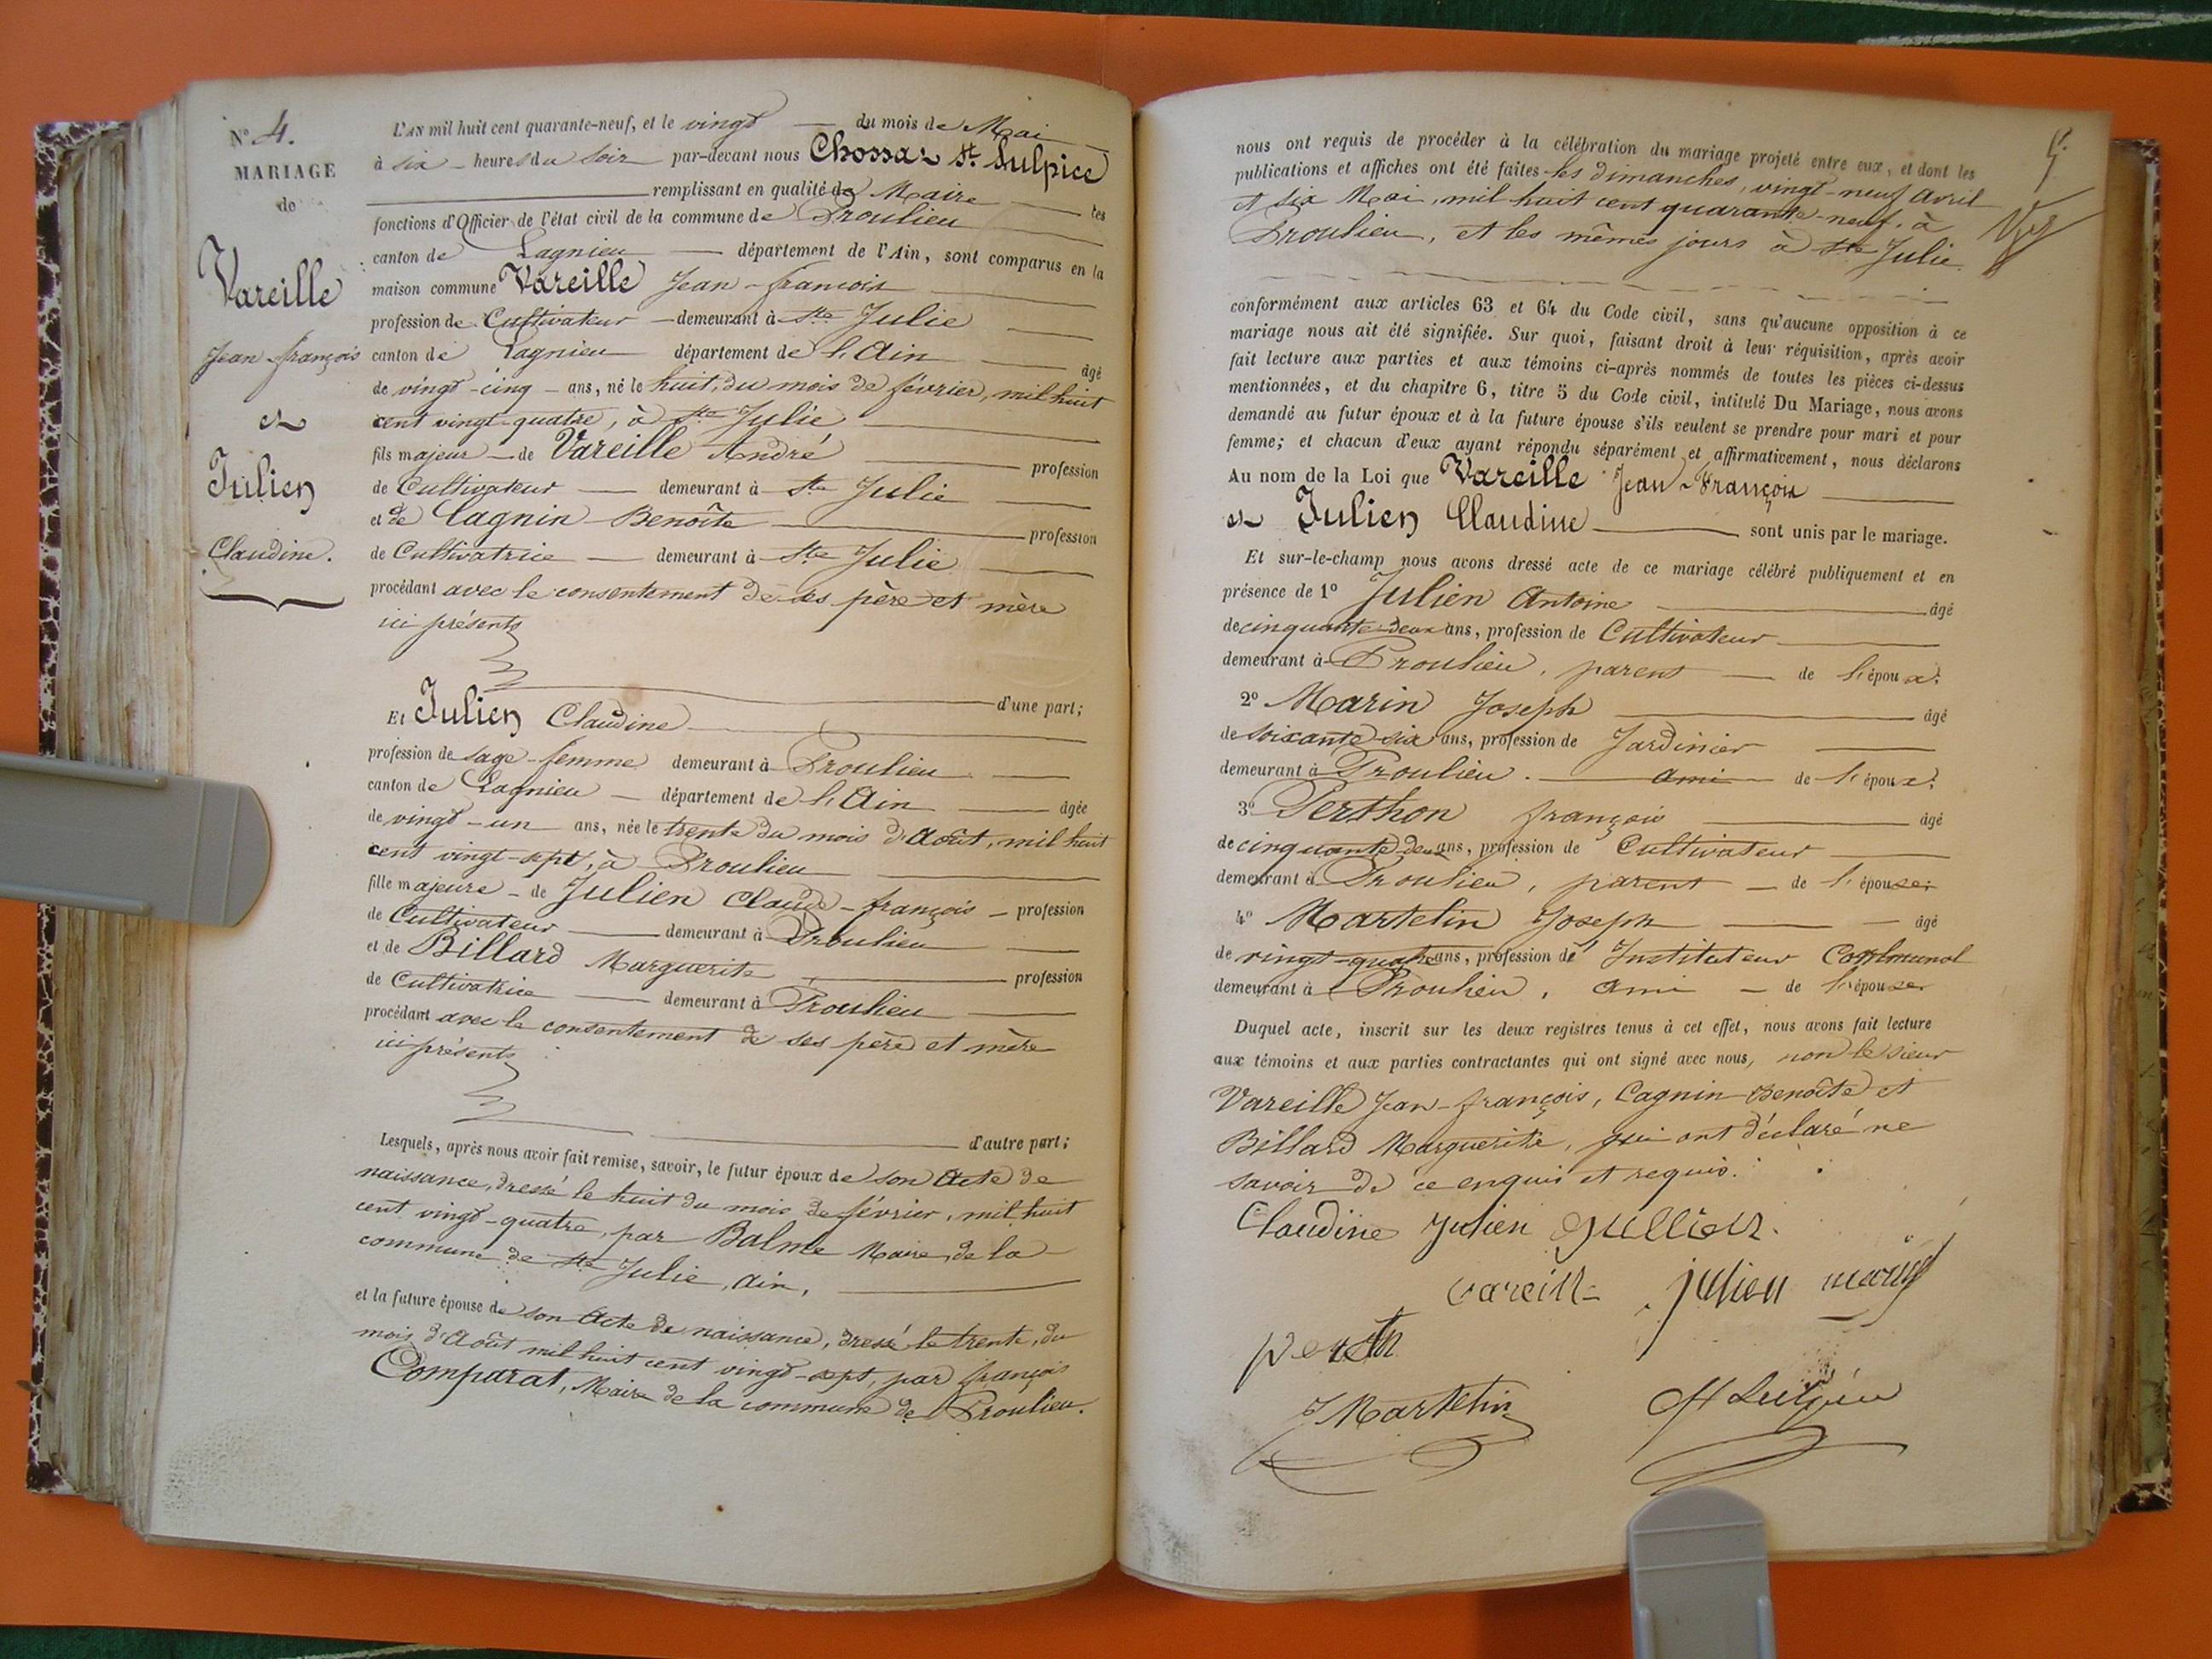 N° 4.
MARIAGE
de
Vareille
Jean-françois
et
Julien
Claudine.
L'AN mil huit cent quarante-neuf, et le vingt du mois de Mai
à six heures du soir par-devant nous Chossat St. Sulpice
remplissant en qualité de Maire les
fonctions d'Officier de l'état civil de la commune de Proulieu
canton de Lagnieu département de l'Ain, sont comparus en la
maison commune Vareille Jean-francois
profession de Cultivateur demeurant à Ste Julie
canton de Lagnieu département de l'Ain âgé
de vingt-cinq ans, né le huit, du mois de février, mil huit
cent vingt-quatre, à Ste Julie
fils majeur de Vareille André profession
de Cultivateur demeurant à Ste Julie
et de Cagnin Benoîte profession
de Cultivatrice demeurant à Ste Julie
procédant avec le consentement de ses père et mère
ici présents
d'une part;
Et Julien Claudine
profession de sage-femme demeurant à Proulieu
canton de Lagnieu département de l'Ain âgée
de vingt-un ans, née le trente du mois d'Août, mil huit
cent vingt-sept, à Proulieu
fille majeure de Julien Claude-françois profession
de Cultivateur demeurant à Proulieu
et de Billard Marguerite profession
de Cultivatrice demeurant à Proulieu
procédant avec le consentement de ses père et mère
ici présents
d'autre part;
Lesquels, après nous avoir fait remise, savoir, le futur époux de son Acte de
naissance, dressé le huit du mois de février, mil huit
cent vingt-quatre, par Balme Maire, de la
commune de Ste Julie, Ain,
et la future épouse de son Acte de naissance, dressé le trente, du
mois d'Août mil huit cent vingt-sept, par françois
Comparat, Maire de la commune de Proulieu.
nous ont requis de procéder à la célébration du mariage projeté entre eux, et dont les
publications et affiches ont été faites les dimanches, vingt-neuf avril
et six Mai, mil huit cent quarante-neuf, à
Proulieu, et les mêmes jours à Ste Julie.
conformément aux articles 63 et 64 du Code civil, sans qu'aucune opposition à ce
mariage nous ait été signifiée. Sur quoi, faisant droit à leur réquisition, après avoir
fait lecture aux parties et aux témoins ci-après nommés de toutes les pièces ci-dessus
mentionnées, et du chapitre 6, titre 5 du Code civil, intitulé Du Mariage, nous avons
demandé au futur époux et à la future épouse s'ils veulent se prendre pour mari et pour
femme; et chacun d'eux ayant répondu séparément et affirmativement, nous déclarons
Au nom de la Loi que Vareille Jean-François
et Julien Claudine sont unis par le mariage.
Et sur-le-champ nous avons dressé acte de ce mariage célébré publiquement et en
présence de 1° Julien Antoine âgé
de cinquante-deux ans, profession de Cultivateur
demeurant à Proulieu, parent de l'époux;
2° Marin Joseph âgé
de soixante-six ans, profession de Jardinier
demeurant à Proulieu. ami de l'époux;
3° Perthon françois âgé
de cinquante-deux ans, profession de Cultivateur
demeurant à Proulieu, parent de l'épouse;
4° Martelin Joseph âgé
de vingt-quatre ans, profession de Instituteur Communal
demeurant à Proulieu, ami de l'épouse
Duquel acte, inscrit sur les deux registres tenus à cet effet, nous avons fait lecture
aux témoins et aux parties contractantes qui ont signé avec nous, non le sieur
Vareille Jean-françois, Cagnin Benoîte et
Billard Marguerite, qui ont déclaré ne
savoir de ce enquis et requis.
Claudine Julien Jullien.
vareille julien marin
J Martelin St Sulpice